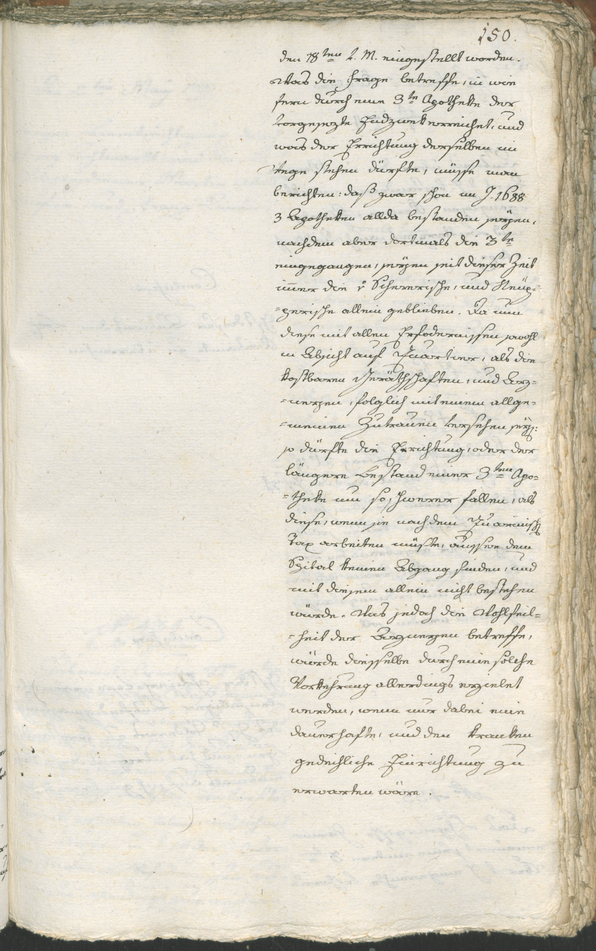 150.
den 18ten d. M. eingestellt worden.
Was die Frage betreffe, in wie
fern durch eine 3te Apotheke der
vorgesezte Endzwek erreichet, und
was der Errichtung derselben im
Wege stehen dürfte, müsse man
berichten: daß zwar schon im J. 1688
3 Apotheken allda bestanden seyen,
nachdem aber dortmals die 3te
eingegangen, seyen seit dieser Zeit
immer die v Schererische, und
=perische allein geblieben. Da nun
diese mit allen Erfordernissen sowohl
in Absicht auf Quartier, als die
kostbaren Geräthschaften, und Arz=
=neyen, folglich mit einem allge=
=meinen Zutrauen versehen seyn:
so dürfte die Errichtung, oder der
längere Bestand einer 3ten Apo=
=theke um so schwerer fallen, als
diese, wenn sie nach dem
Tax arbeiten müste, ausser dem
Spital keinen Abgang finden, und
mit diesem allein nicht bestehen
würde. Was jedoch die Wohlfeil=
=heit der Arzneyen betreffe,
würde dieselbe durch eine solche
Vorkehrung allerdings erzielet
werden, wenn nur dabei eine
dauerhafte, und den Kranken
gedeihliche Einrichtung zu
erwarten wäre.